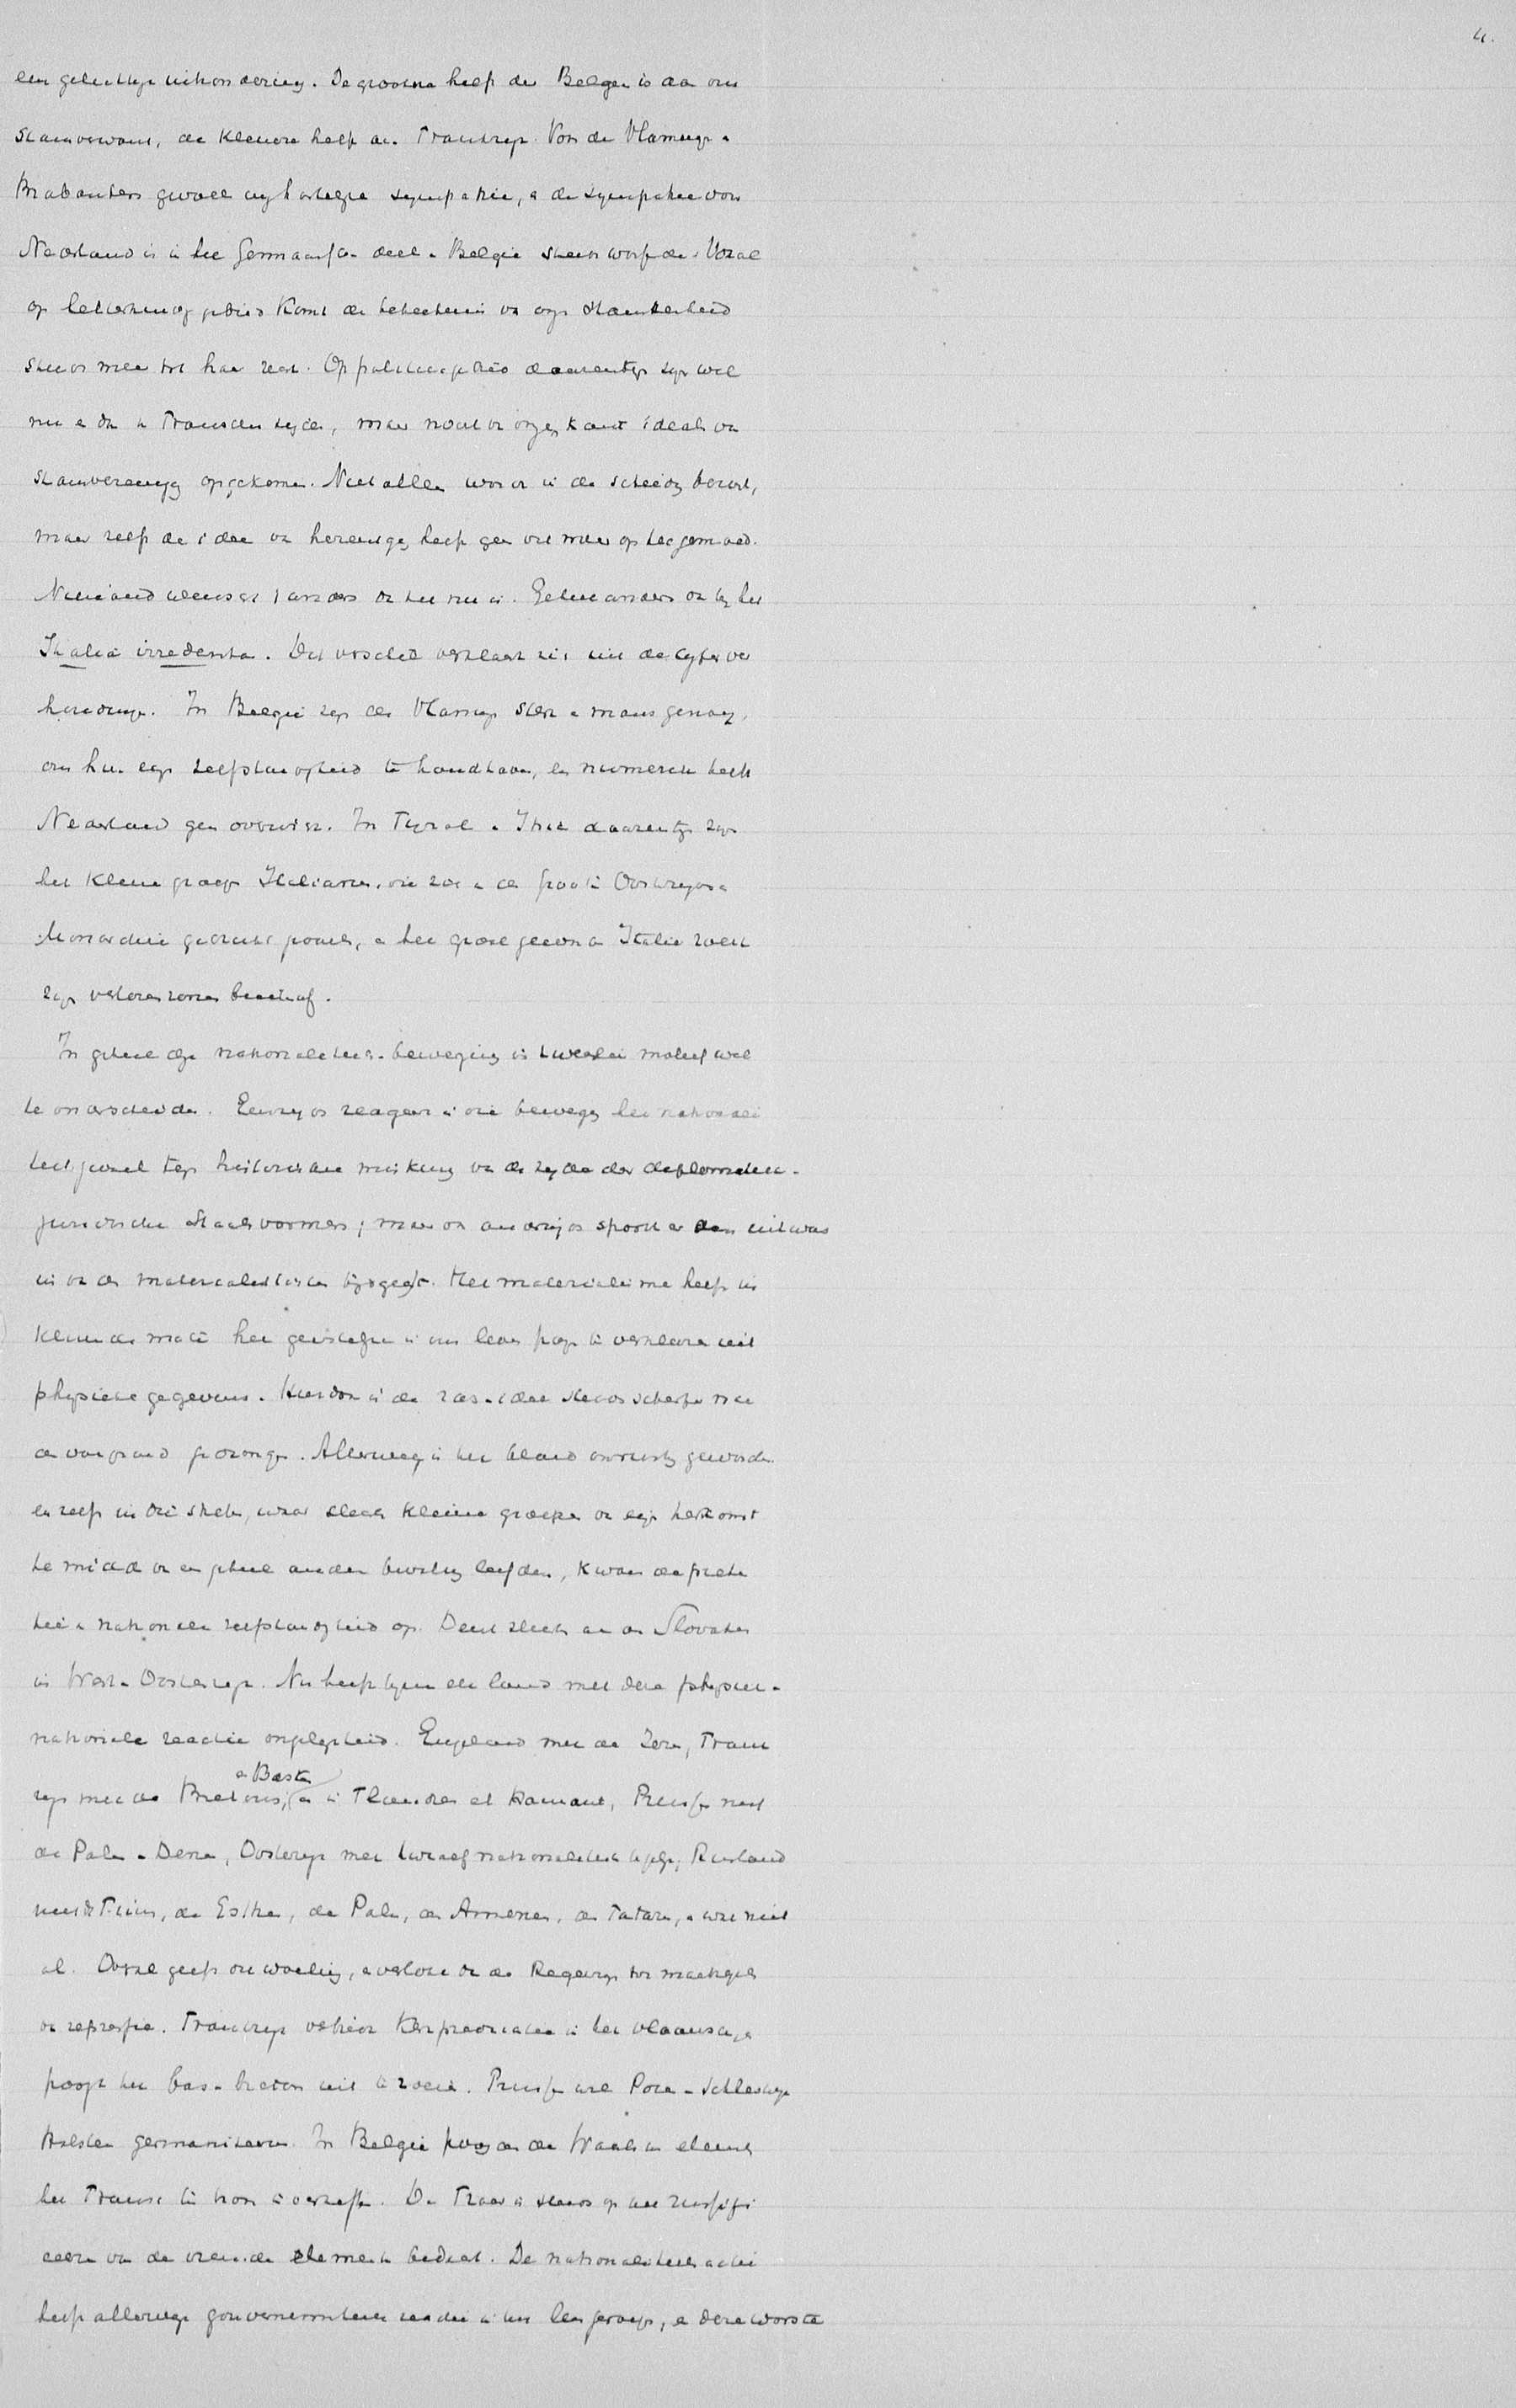 4.
een gedeeltelijke uitzondering. De grootere helft der Belgen is aan ons
stamverwant, de kleinere helft aan Frankrijk. Voor de Vlamingen en
Brabanders gevoelen wij hartelijke sympathie, en de sympathie voor
Nederland is in het Germaansche deel van België steeds
op letterkundig gebied komt de beteekenis van onze stameenheid
steeds meer tot haar recht. Op politiek gebied daarentegen zijn wel
nu en dan in Franschen tijd, maar nooit van onze kant ideaal van
stamvereeniging opgekomen. Niet alleen word er in de scheiding berust,
maar zelfs de idee van hereeniging heeft geen vat meer op het gemoed.
Niemand wenscht 't anders dan het nu is. Geheel anders dan bij het
Italia irredenta. Dit verschil verklaart zich uit de cijfer ver
houdingen. In België zijn de Vlamingen sterk en mans genoeg,
om hun eigen zelfstandigheid te handhaven, en numeriek heeft
Nederland geen overwicht. In Tyrol en Istrië daarentegen zijn
het kleine groepen Italianen, die zich in de groote Oostenrijksche
Monarchie gedrukt gevoelen, en het groote geeenden Italië zoekt
zijn verloren zonen
In geheel deze nationaliteits-beweging is tweeërlei motief wel
te onderscheiden. Eenerzijds reageert in die beweging het nationali
teitsgevoel tegen historische miskenning van de zijde der diplomatiek-
juridische Staatsvormers; maar ook anderzijds spoort er een uitwas
in van de materialistische tijdgeest. Het materialisme heeft in
klimmende mate het geestelijke in ons leven pogen te verklaren uit
physieke gegevens. Hierdoor is de ras-idee steeds scherper naar
den voorgrond gedrongen. Allerwegen is het bloed onrustig geworden
en zelfs in die staten, waar slechts kleine groepen van eigen herkomst
te midden van een geheel andere bevolking leefden, kwam de preten
tie van nationale zelfstandigheid op. Denk slechts aan de Slovaken
in West-Oostenrijk. Nu heeft bijna elk land met deze physiek-
nationale reactie ongelegenheid. Engeland met de Ieren, Frank
rijk met de Bretons, en Basken en in Flandre et Hainaut, Pruisen met
de Polen en Denen, Oostenrijk met twaalf nationaliteiten tegelijk, Rusland
met de Finnen, de Esthen, de Polen, de Armeniërs, de Tataren, en wat niet
al. Overal geeft dit woeling, en verlokt het de Regeering tot maatregelen
van repressie. Frankrijk verbiedt kerkpredicatie in het Vlaamsch, en
poogt het bas-breton uit te roeien. Pruisen wil Posen en Schleswijk
Holstein germaniseeren. In België poogde de Waalsche element
het Fransch ten troon te verheffen. De Tsaar is steeds op het russifi
ceeren van de vreemde elementen bedacht. De nationaliteits actie
heeft allerwegen gouvernementeele reactie in het leven geroepen, en deze worstel